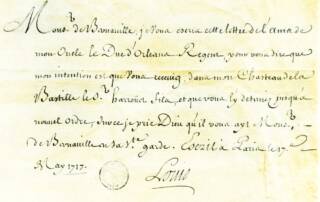 Mons.r de Bernaville, je vous escris cette lettre de l'avis de
mon Oncle le Duc d'Orleans Regent, pour vous dire que
mon intention est que vous receviez dans mon Chasteau de la
Bastille le S.r harouet fils, et que vous ly deteniez jusqu'a
nouvel ordre, Sur ce je prie Dieu qu'il vous ayt Mons.r
de Bernaville en sa s.te garde. Escrit à Paris le 17e
May 1717.
Louis